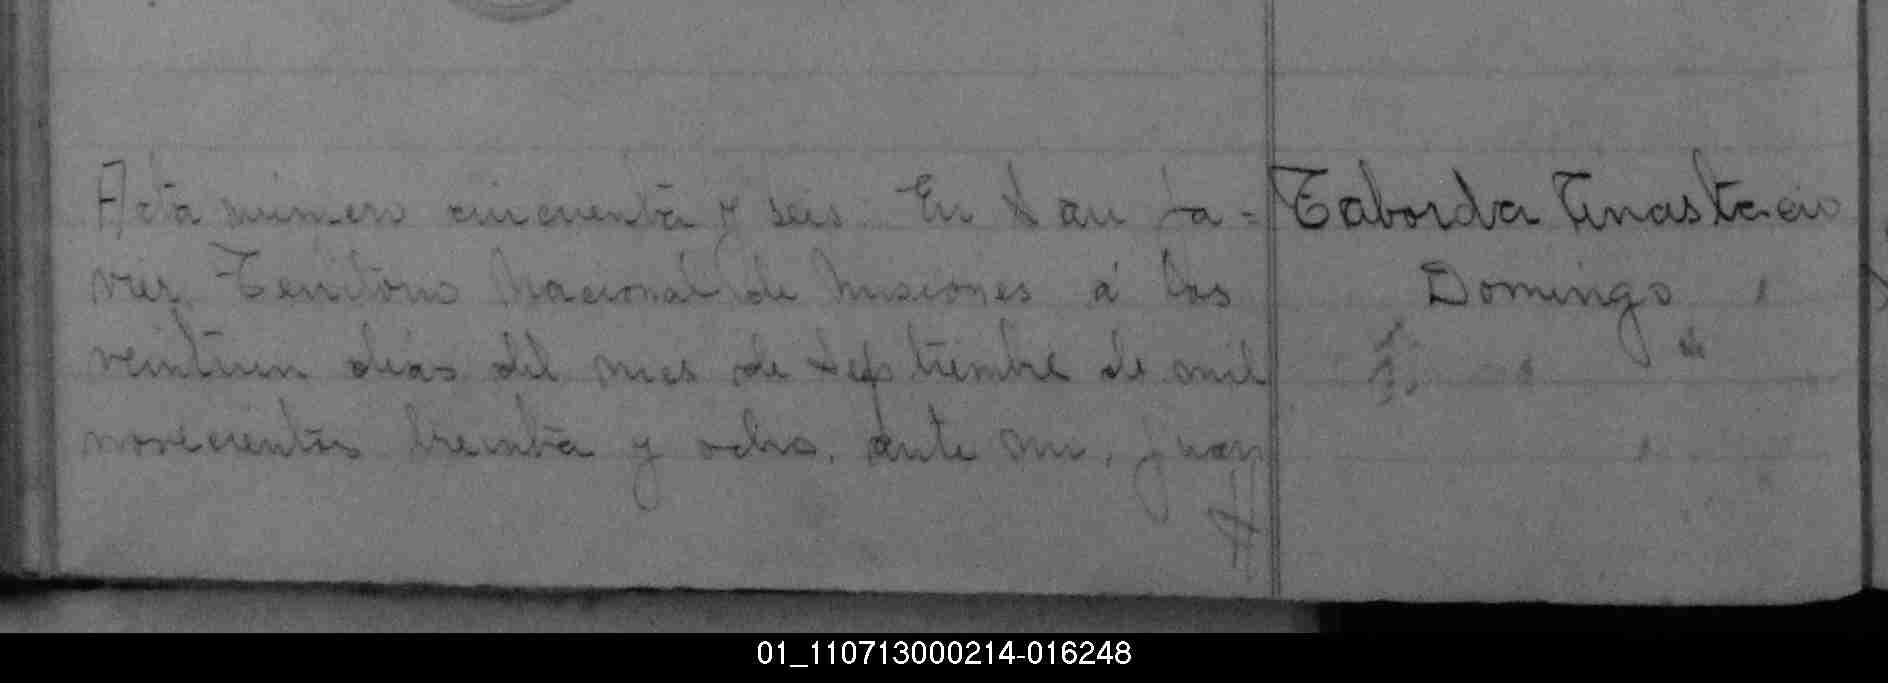 Acta número cincuenta y seis. En San Ja-
vier, Territorio Nacional de Misiones á los
veintiun dias del mes de Septiembre de mil
novecientos treinta y ocho, ante mi, Juan
Taborda Anastacio
Domingo
01_110713000214-016248